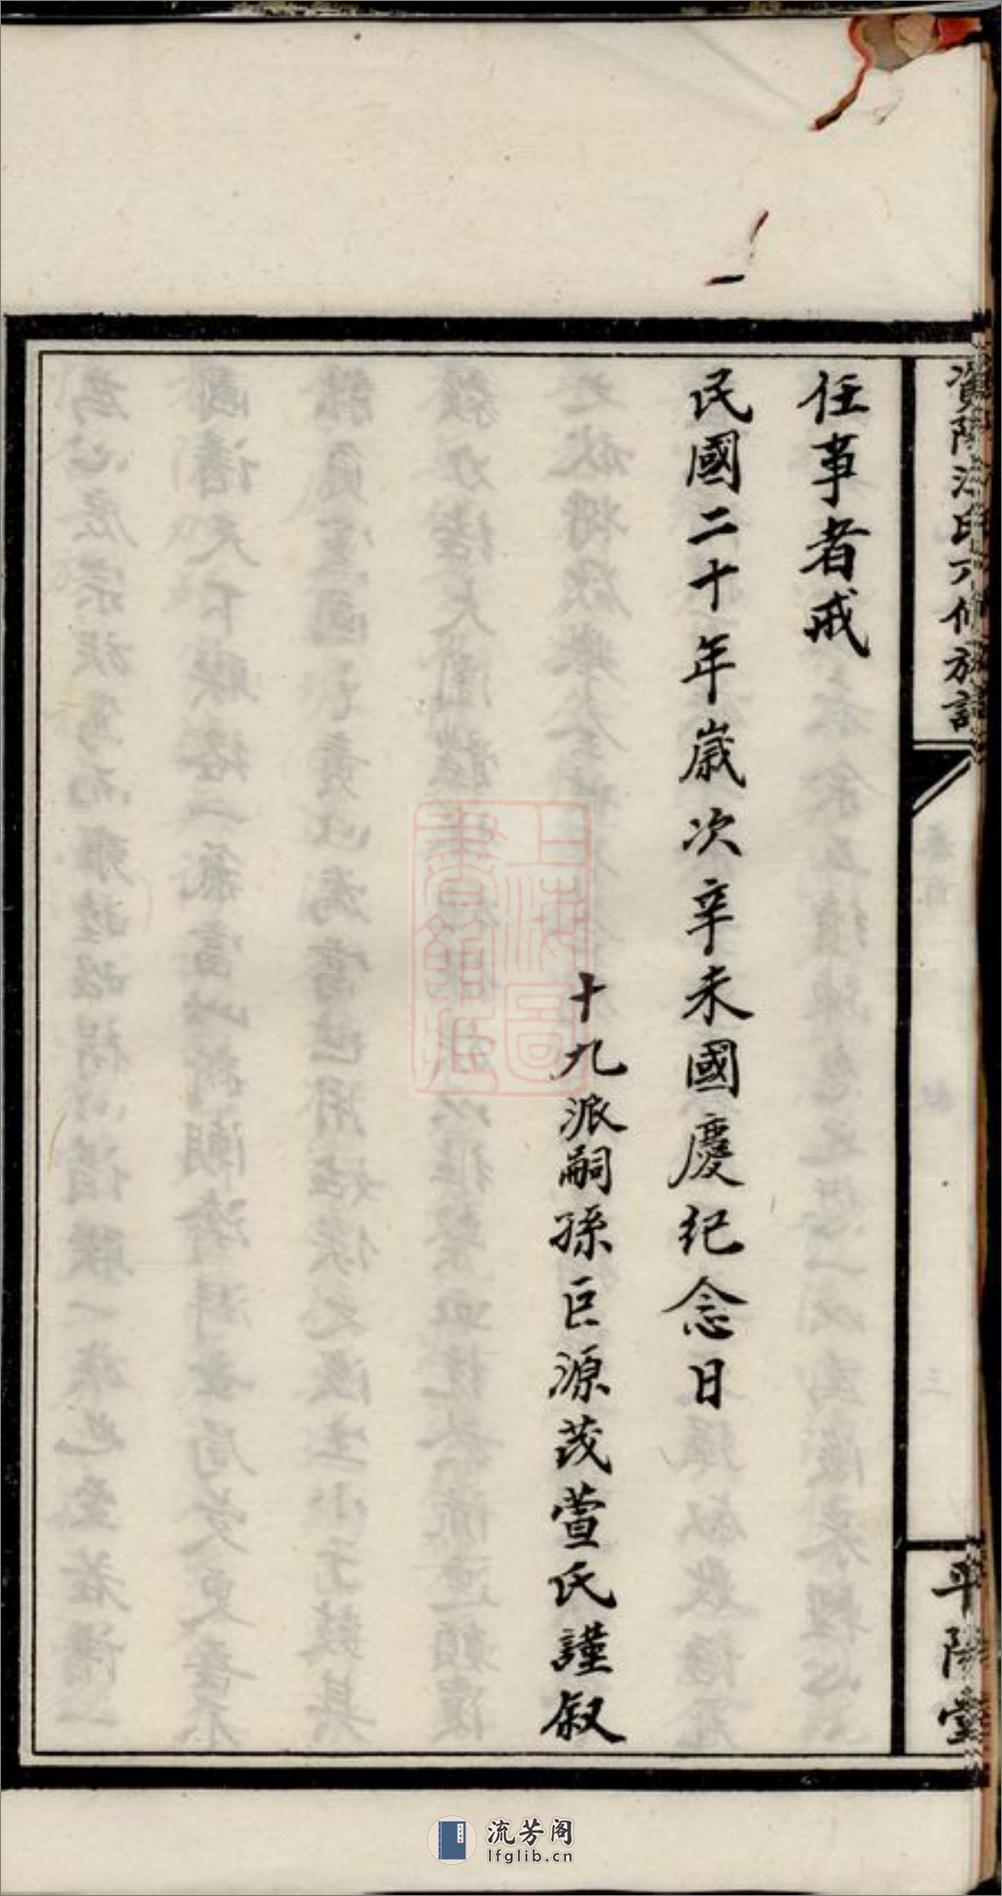 資陽汪氏六修族譜
平陽堂
任事者戒
民國二十年歲次辛未國慶纪念日
十九派嗣孫巨源茂萱氏謹叙
上海圖書館藏
流芳阁
lfglib.cn